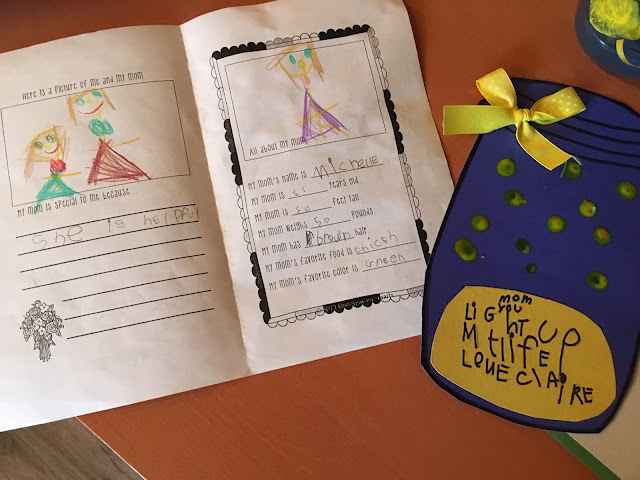 Here is a picture of me and my mom
My mom is special to me because
She is helpful
All about my mom
My mom's name is Michelle
My mom is 31 years old.
My mom is 50 feet tall.
My mom weighs 50 pounds.
My mom has brown hair.
My mom's favorite food is chicen
My mom's favorite color is Green
mom
you
LiGhT UP
M tlife
LOVE ClAiRE